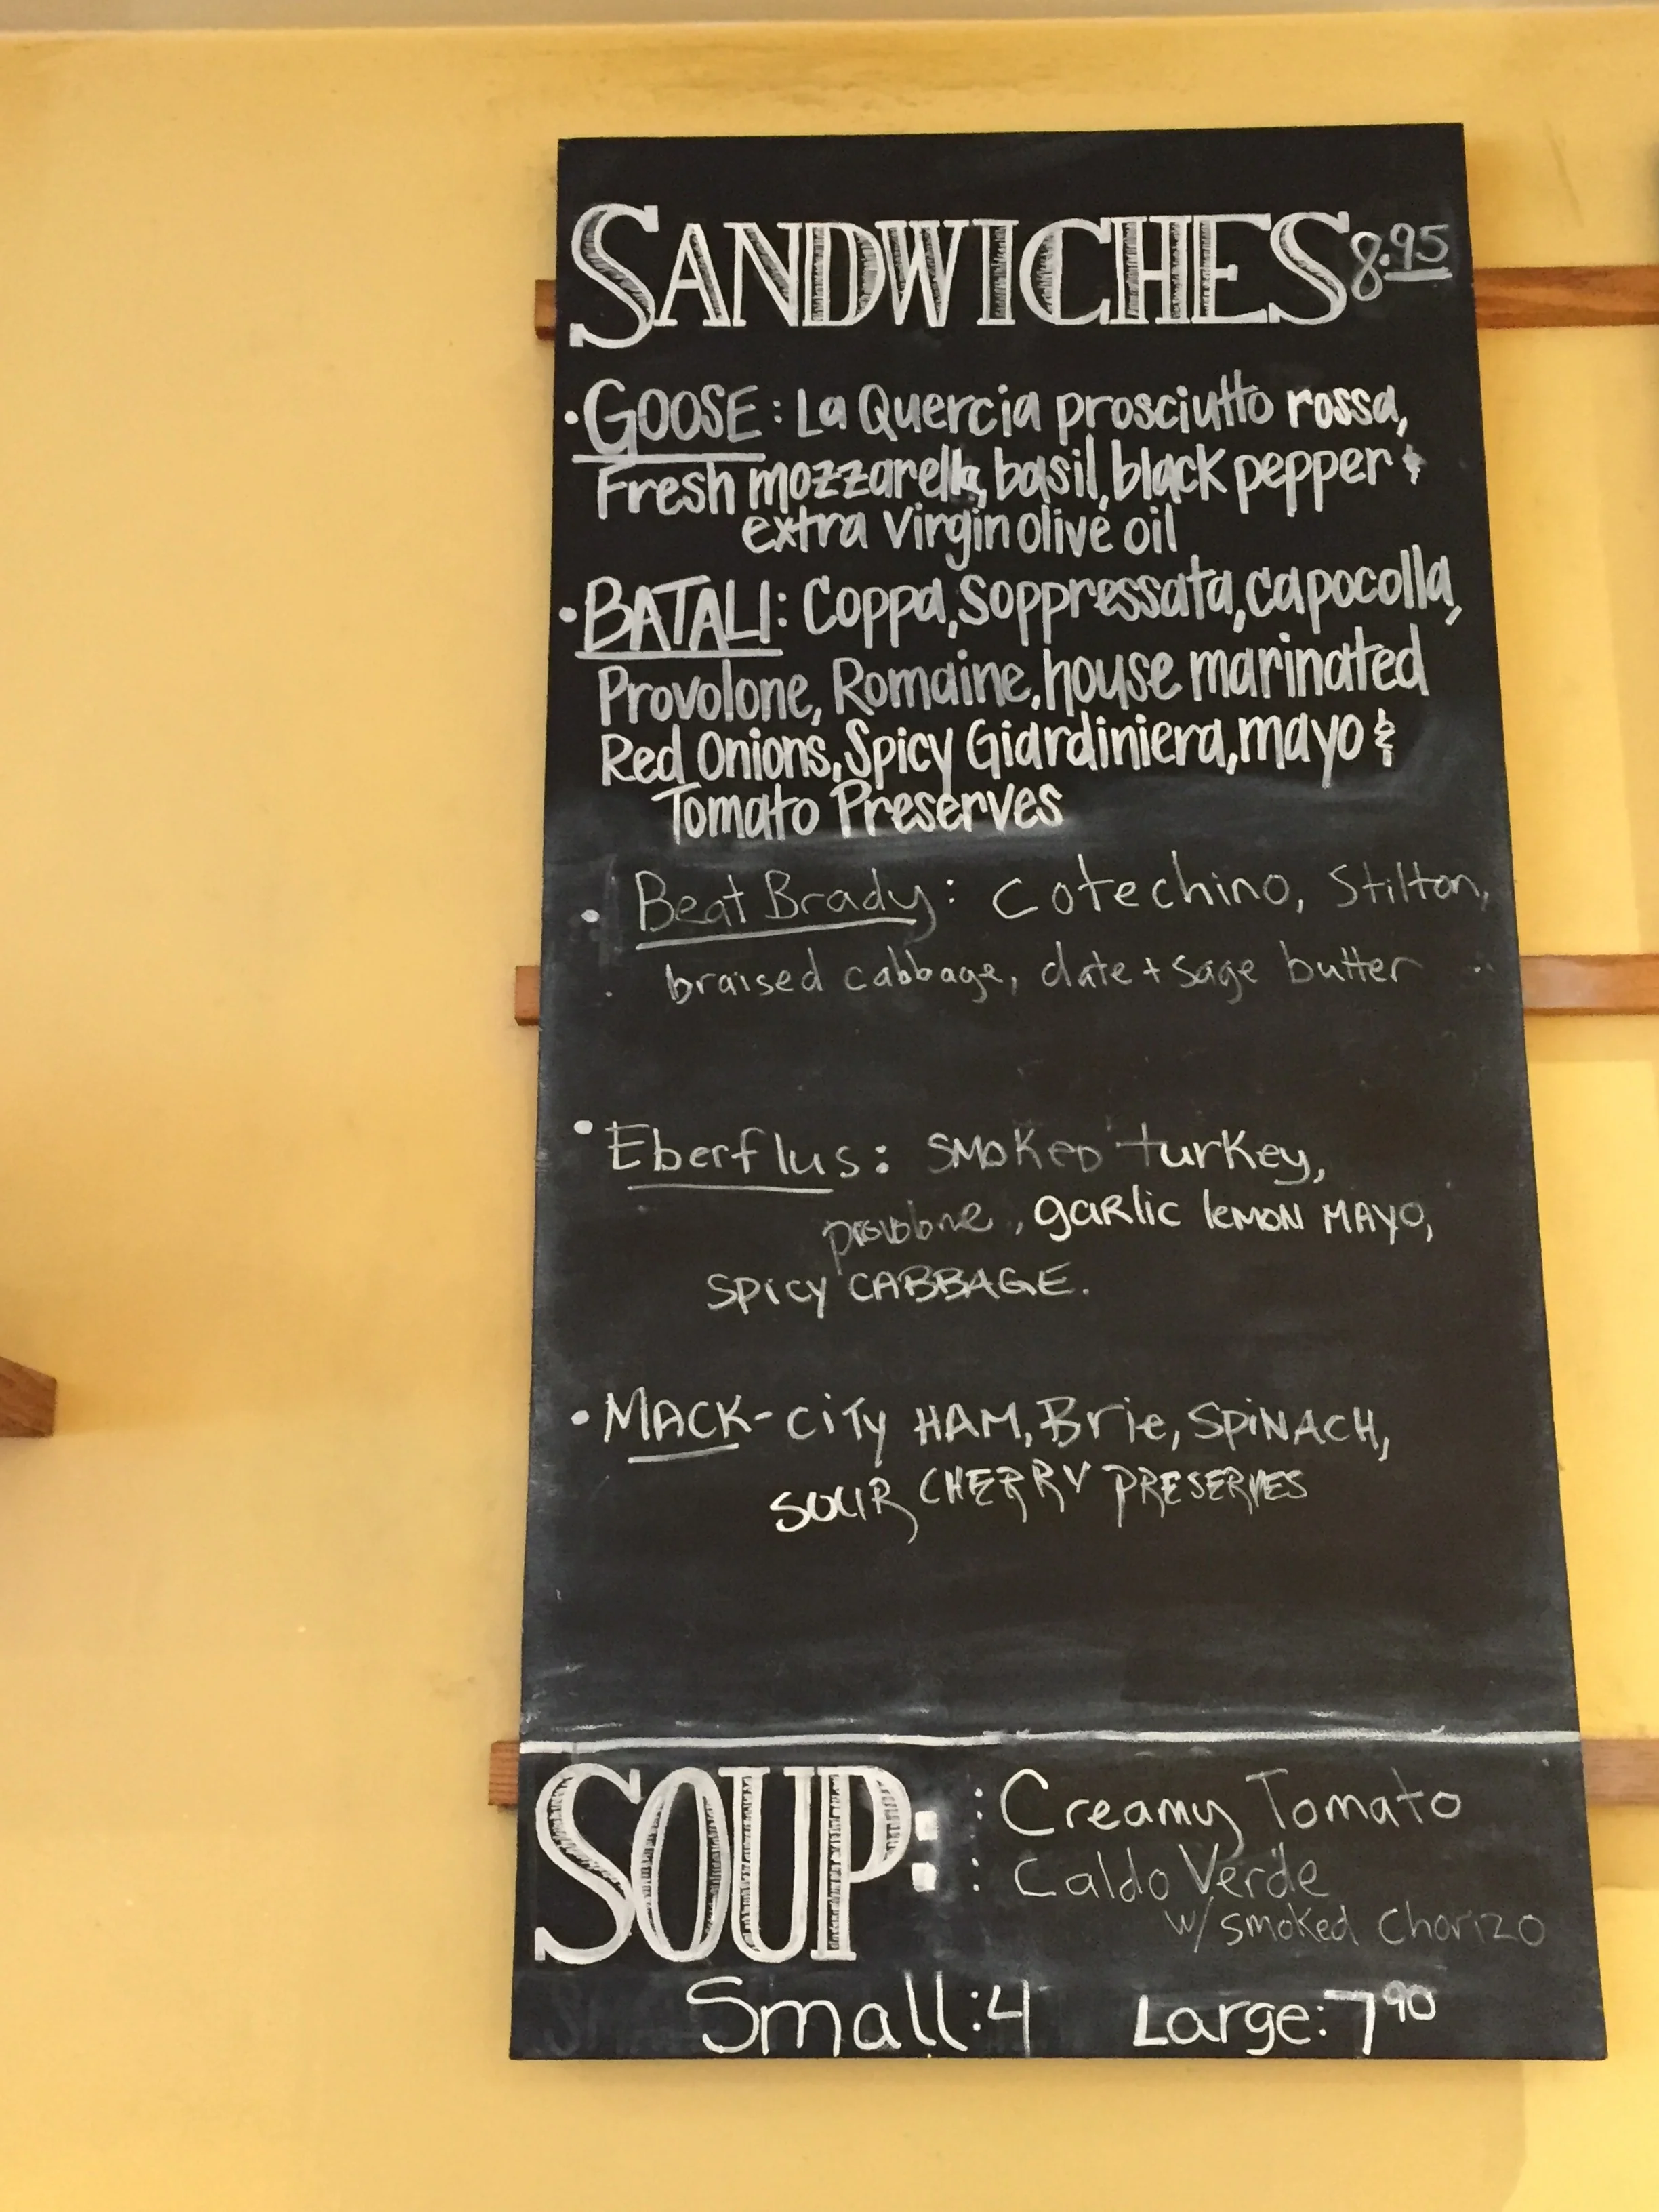 SANDWICHES 8.95
• GOOSE: La Quercia prosciutto rossa,
Fresh mozzarella, basil, black pepper &
extra Virgin olive oil
• BATALI: Coppa, Soppressata, capocolla,
Provolone, Romaine, house marinated
Red Onions, Spicy Giardiniera, mayo &
Tomato Preserves
• Beat Brady: Cotechino, Stilton,
braised cabbage, date + sage butter
• Eberflus: SMOKED turkey,
provolone, garlic lemon MAYO,
Spicy CABBAGE.
• MACK - CITY HAM, Brie, SPINACH,
SOUR CHERRY PRESERVES
SOUP: : Creamy Tomato
: Caldo Verde
w/ smoked Chorizo
Small: 4 Large: 7 90